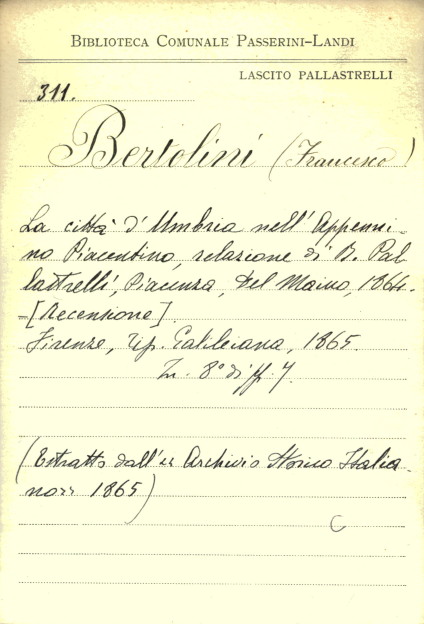 BIBLIOTECA COMUNALE PASSERINI-LANDI
LASCITO PALLASTRELLI
311.
Bertolini (Francesco)
La città d'Umbria nell'Appenni-
no Piacentino, relazione di B. Pal
lastrelli, Piacenza, Del Maino, 1864.
-[Recensione].
Firenze, tip. Galileiana, 1865.
In 8° di ff. 7.
(Estratto dall'" Archivio Storico Italia-
no" 1865)
C